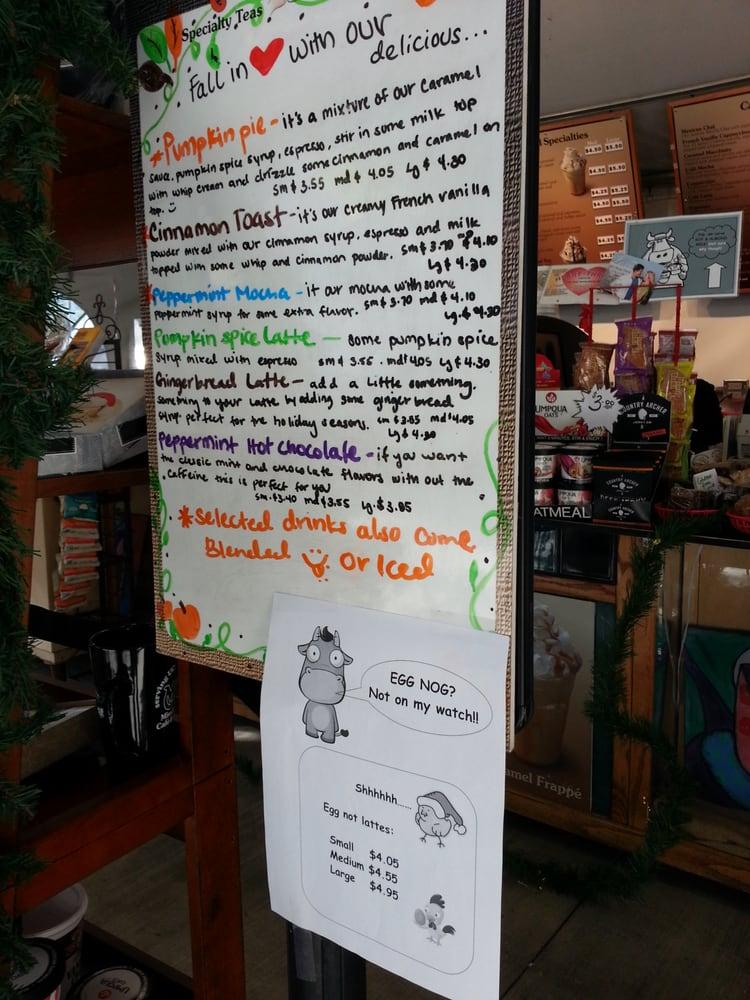 Specialty Teas
Fall in with our
delicious...
*Pumpkin pie - it's a mixture of our caramel
sauce, pumpkin spice syrup, espresso, stir in some milk top
with whip cream and drizzle some cinnamon and caramel on
top. :)
sm $3.55 md $4.05 Lg $4.30
*Cinnamon Toast - it's our creamy French vanilla
powder mixed with our cinnamon syrup, espresso and milk
topped with some whip and cinnamon powder. sm $3.70 $4.10
Lg $4.30
*Peppermint Mocha - it our mocha with some
peppermint syrup for some extra flavor. sm $3.70 md $4.10
Lg $4.30
Pumpkin spice Latte - some pumpkin spice
syrup mixed with espresso sm $3.55 md $4.05 Lg $4.30
Gingerbread Latte - add a little something.
something to your latte by adding some ginger bread
syrup perfect for the holiday seasons. md $4.05
Lg $4.30
Peppermint Hot chocolate - if you want
the classic mint and chocolate flavors with out the
caffeine this is perfect for you
sm $3.40 md $3.55 Lg $3.85
*Selected drinks also come
Blended Or Iced
EGG NOG?
Not on my watch!!
Shhhhhh.....
Egg not lattes:
Small $4.05
Medium $4.55
Large $4.95
Specialties
$4.50 $5.50
Mexican Chai
$3.00
UMPQUA
OATS
COUNTRY ARCHER
OATMEAL
amel Frappé